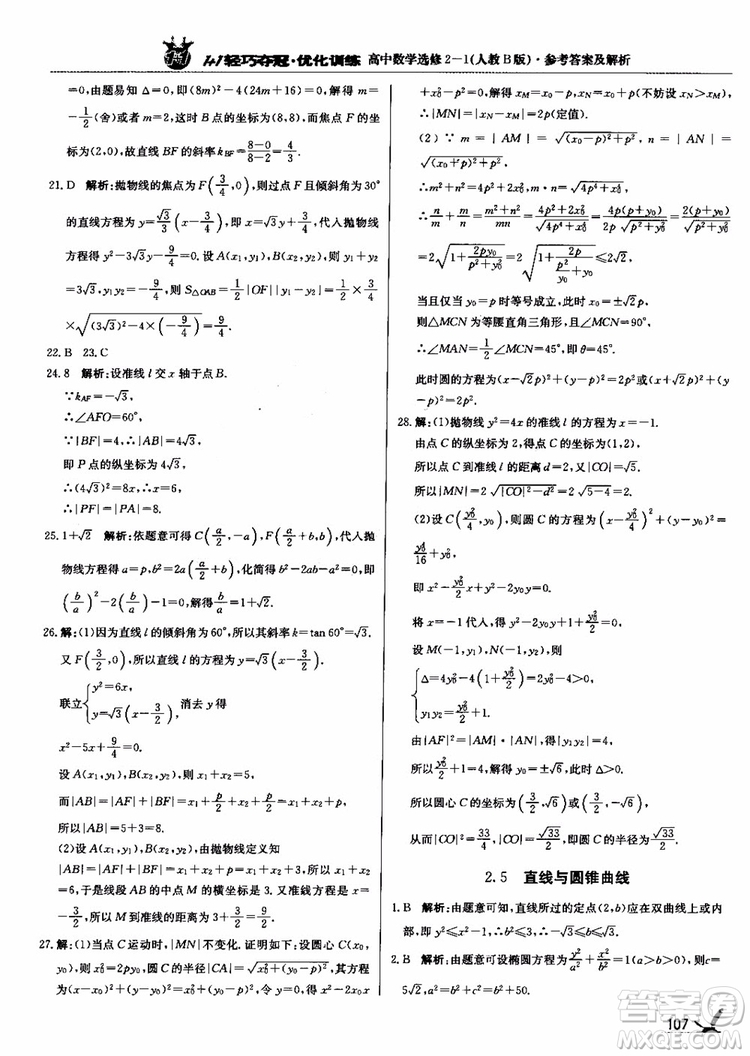 1+1轻巧夺冠·优化训练 高中数学选修2-1(人教B版)·参考答案及解析
=0,由题易知Δ=0,即(8m)²-4(24m+16)=0,解得 m=
-1/2(舍)或者 m=2,这时 B 点的坐标为(8,8),而焦点坐
标为(2,0),故直线 BF 的斜率 k_BF=(8-0)/(8-2)=4/3.
21. D 解析:抛物线的焦点为 F(3/4,0),则过点 F 且倾斜角为30°
的直线方程为 y=√3/3(x-3/4),即 x=√3y+3/4,代入抛物线
方程得 y²-3√3y-9/4=0.设 A(x₁,y₁),B(x₂,y₂),则 y₁+y₂
=3√3,y₁y₂=-9/4,则 S△OAB=1/2|OF||y₁-y₂|=1/2×3/4
×√((3√3)²-4×(-9/4))=9/4.
22. B 23. C
24. 8 解析:设准线 l 交 x 轴于点 B.
∵k_AF=-√3,
∴∠AFO=60°.
∵|BF|=4,∴|AB|=4√3,
即 P 点的纵坐标为4√3,
∴(4√3)²=8x,∴x=6,
∴|PF|=|PA|=8.
25. 1+√2 解析:依题意可得 C(a/2,-a),F(a/2+b,b),代入抛
物线方程得 a=p,b²=2a(a/2+b),化简得 b²-2ab-a²=0,即
(b/a)²-2(b/a)-1=0,解得 b/a=1+√2.
26. 解:(1)因为直线 l 的倾斜角为60°,所以其斜率 k=tan 60°=√3.
又 F(3/2,0),所以直线 l 的方程为 y=√3(x-3/2).
联立{y²=6x, y=√3(x-3/2), 消去 y 得
x²-5x+9/4=0.
设 A(x₁,y₁),B(x₂,y₂),则 x₁+x₂=5,
而|AB|=|AF|+|BF|=x₁+p/2+x₂+p/2=x₁+x₂+p,
所以|AB|=5+3=8.
(2)设 A(x₁,y₁),B(x₂,y₂),由抛物线定义知
|AB|=|AF|+|BF|=x₁+p/2+x₂+p/2=x₁+x₂+p=x₁+x₂+3=9,所以 x₁+x₂=
6,于是线段 AB 的中点 M 的横坐标是3,又准线方程是 x=
-3/2,所以 M 到准线的距离等于3+3/2=9/2.
27. 解:(1)当点 C 运动时,|MN|不变化.证明如下:设圆心 C(x₀,
y₀),则 x₀²=2py₀,圆 C 的半径|AC|=√(x₀²+(y₀-p)²),
=0,解得 x_M=x₀-p,x_N=x₀+p(不妨设 x_M<x_N),
∴|MN|=|x_N-x_M|=2p(定值).
(2)∵m=|AM|=√((x₀-p)²+p²),n=|AN|=
√((x₀+p)²+p²),
∴m²+n²=4p²+2x₀²,m·n=√(4p⁴+x₀⁴),
∴n/m+m/n=(m²+n²)/mn=(4p²+2x₀²)/√(4p⁴+x₀⁴)=4p(p+y₀)/(2p√(p²+y₀²))=2(p+y₀)/√(p²+y₀²)
=2√(1+2py₀/(p²+y₀²))=2√(1+2p/(p²/y₀+y₀))≤2√2,
当且仅当 y₀=p 时等号成立,此时 x₀=±√2p,
则△MCN 为等腰直角三角形,且∠MCN=90°,
∴∠MAN=1/2∠MCN=45°,即θ=45°.
此时圆的方程为(x-√2p)²+(y-p)²=2p²或(x+√2p)²+
(y-p)²=2p².
28. 解:(1)抛物线 y²=4x 的准线 l 的方程为 x=-1.
由点 C 的纵坐标为2,得点 C 的坐标为(1,2),
所以点 C 到准线 l 的距离 d=2,又|CO|=√5.
所以|MN|=2√(|CO|²-d²)=2√(5-4)=2.
(2)设 C(y₀²/4,y₀),则圆 C 的方程为(x-y₀²/4)²+(y-y₀)²=
y₀⁴/16+y₀²,
即 x²-y₀²/2x+y²-2y₀y=0.
将 x=-1代入上式得 y²-2y₀y+1+y₀²/2=0.
设 M(-1,y₁),N(-1,y₂),则
{Δ=4y₀²-4(1+y₀²/2)=2y₀²-4>0,
y₁y₂=y₀²/2+1.
由|AF|²=|AM|·|AN|,得|y₁y₂|=4,
所以y₀²/2+1=4,解得 y₀=±√6,此时Δ>0.
所以圆心 C 的坐标为(3/2,√6)或(3/2,-√6),
从而|CO|²=33/4,|CO|=√33/2,即圆 C 的半径为√33/2.
2.5 直线与圆锥曲线
1. B 解析:由题意可知,直线所过的定点(2,b)应在双曲线上或内
部,即 b²≤2²-1,∴-√3≤b≤√3.
2. B 解析:由题意可设椭圆方程为y²/a²+x²/b²=1(a>b>0),且 c=
5√2,a²-b²=50,
107